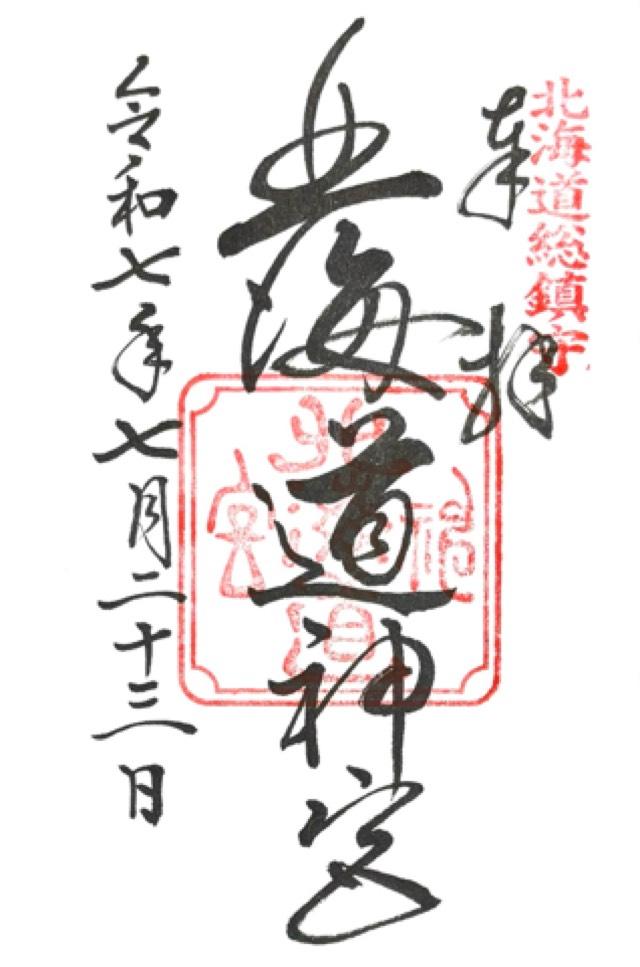 北海道総鎮守
奉拝
北海道神宮
令和七年七月二十三日